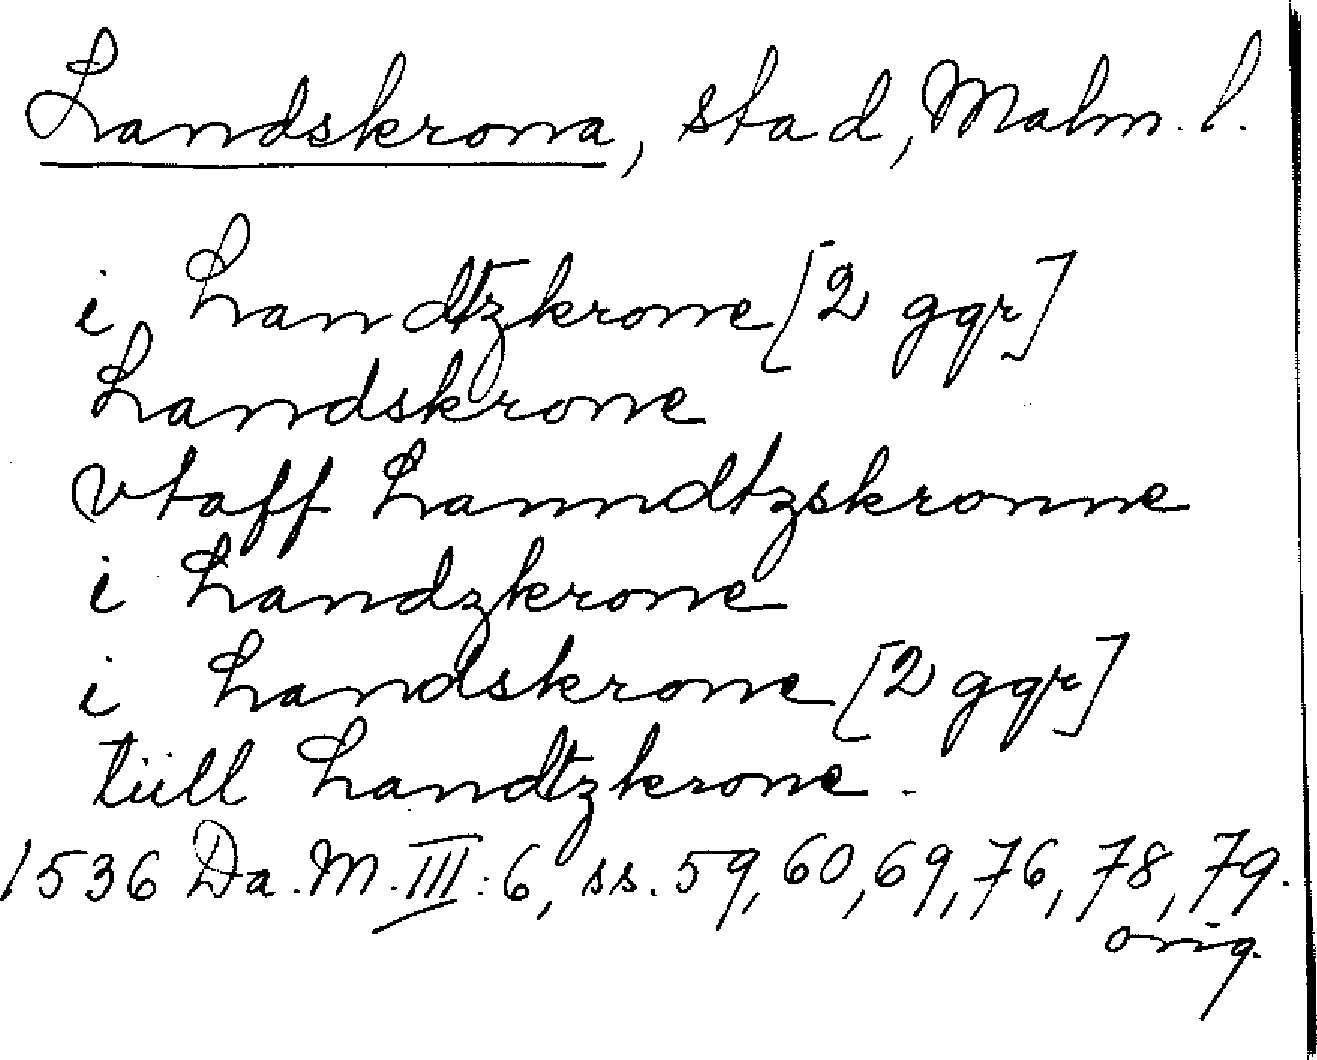 Landskrona, stad, Malm. l.
i Landtzkrone [2 ggr]
Landskrone
vtaff Lanndtzskronne
i Landzkrone
i Landskrone [2 ggr]
tiill Landtzkrone.
1536 Da. M. III: 6, ss. 59, 60, 69, 76, 78, 79.
orig.